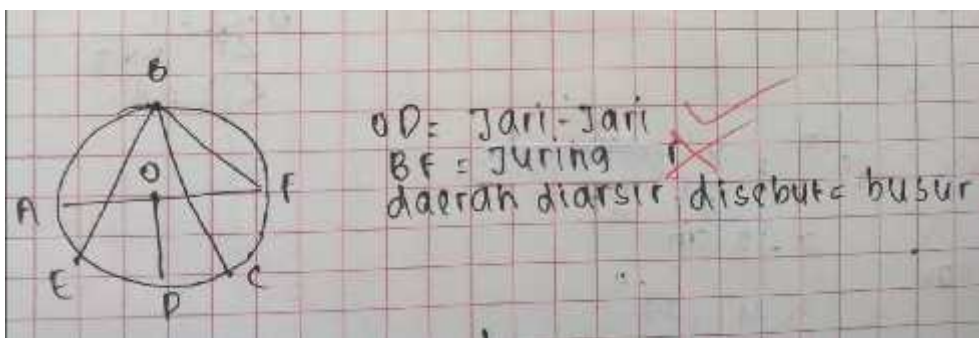 B
O
A
F
E
C
D
OD = Jari-Jari
BF = Juring
daerah diarsir disebut = busur